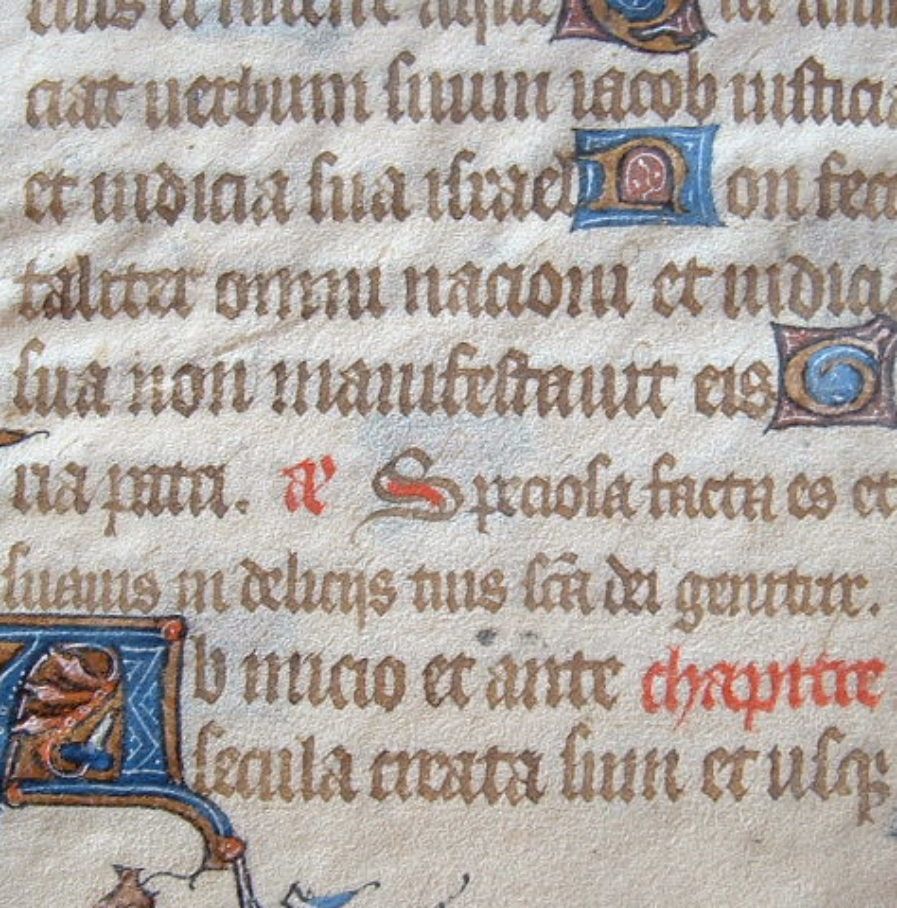 ciat uerbum suum iacob iusticia
et iudicia sua israel Non feci
taliter omni nacioni et iudicia
sua non manifestauit eis G
ria patri. Speciosa facta es et
suauis in deliciis tuis sc̄a dei genitrix.
Ab inicio et ante chapitre
secula creata sum et usqꝫ